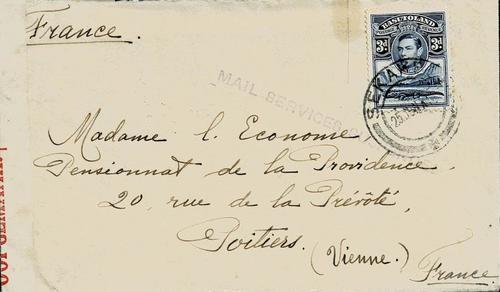 France.
BASUTOLAND
3d 3d
MAIL SERVICES
SEKAKE
Madame l. Econome
Pensionnat de la Providence,
20, rue de la Prévôté,
Poitiers. (Vienne.)
France